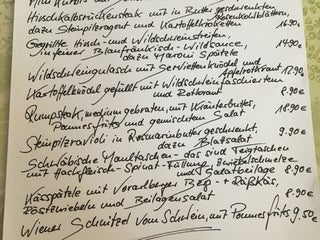 Hirschkalbsrückensteak mit in Butter geschwenkten Rosenkohlblättern,
dazu Steinpilzragout und Kartoffelkroketten 16.90€
Gegrillte Hirsch- und Wildschweinstreifen
in feiner Blaufränkisch-Wildsauce,
dazu Maroni Spätzle 14.90€
Wildschweingulasch mit Serviettenknödel und
Apfelrotkraut 12.90€
Kartoffelknödel gefüllt mit Wildschweinfaschiertem
und Rotkraut 8.90€
Rumpsteak, medium gebraten, mit Kräuterbutter,
Pommes frits und gemischtem Salat 18.90€
Steinpilzravioli in Rosmarinbutter geschwenkt,
dazu Blattsalat 9.90€
Schwäbische Maultaschen - das sind Teigtaschen
mit Hackfleisch-Spinat-Füllung, Zwiebelschmelze
und Salatbeilage 8.90€
Kässpätzle mit Vorarlberger Berg- + Räßkäs,
Röstzwiebeln und Beilagensalat 8.90€
Wiener Schnitzel vom Schwein, mit Pommes frits 9.50€